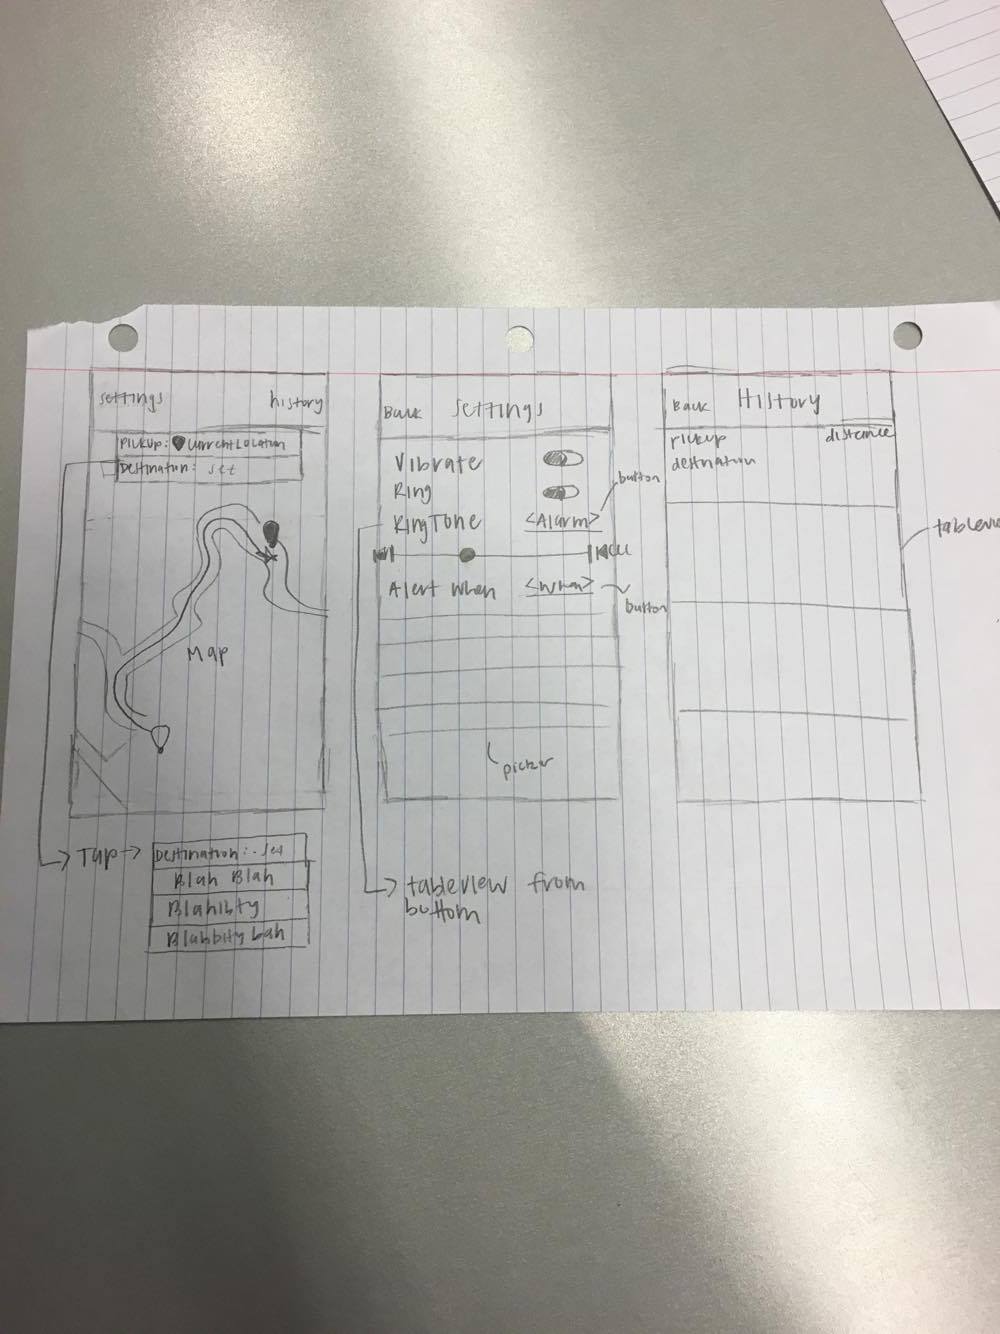 settings history
Pickup: Current Location
Destination: set
Map
Tap
Destination: set
Blah Blah
Blahibty
Blahbity bah
Back Settings
Vibrate
Ring
button
RingTone <Alarm>
Alert when <When>
button
picker
tableview from
bottom
Back History
pickup distance
destination